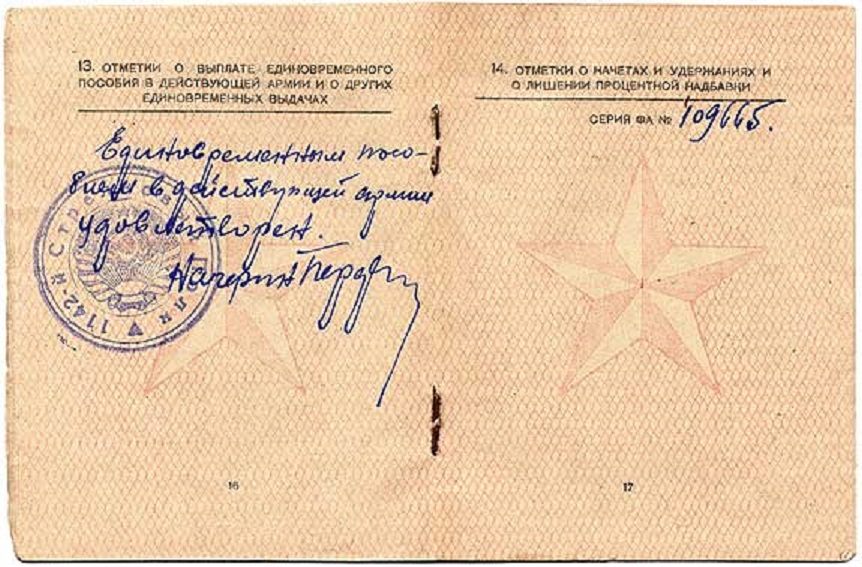 13. ОТМЕТКИ О ВЫПЛАТЕ ЕДИНОВРЕМЕННОГО
ПОСОБИЯ В ДЕЙСТВУЮЩЕЙ АРМИИ И О ДРУГИХ
ЕДИНОВРЕМЕННЫХ ВЫДАЧАХ
Единовременным посо-
бием в действующей армии
удовлетворен.
Начфин
1142-й Стрелковый Полк
16
14. ОТМЕТКИ О НАЧЕТАХ И УДЕРЖАНИЯХ И
О ЛИШЕНИИ ПРОЦЕНТНОЙ НАДБАВКИ
СЕРИЯ ФА № 109665.
17